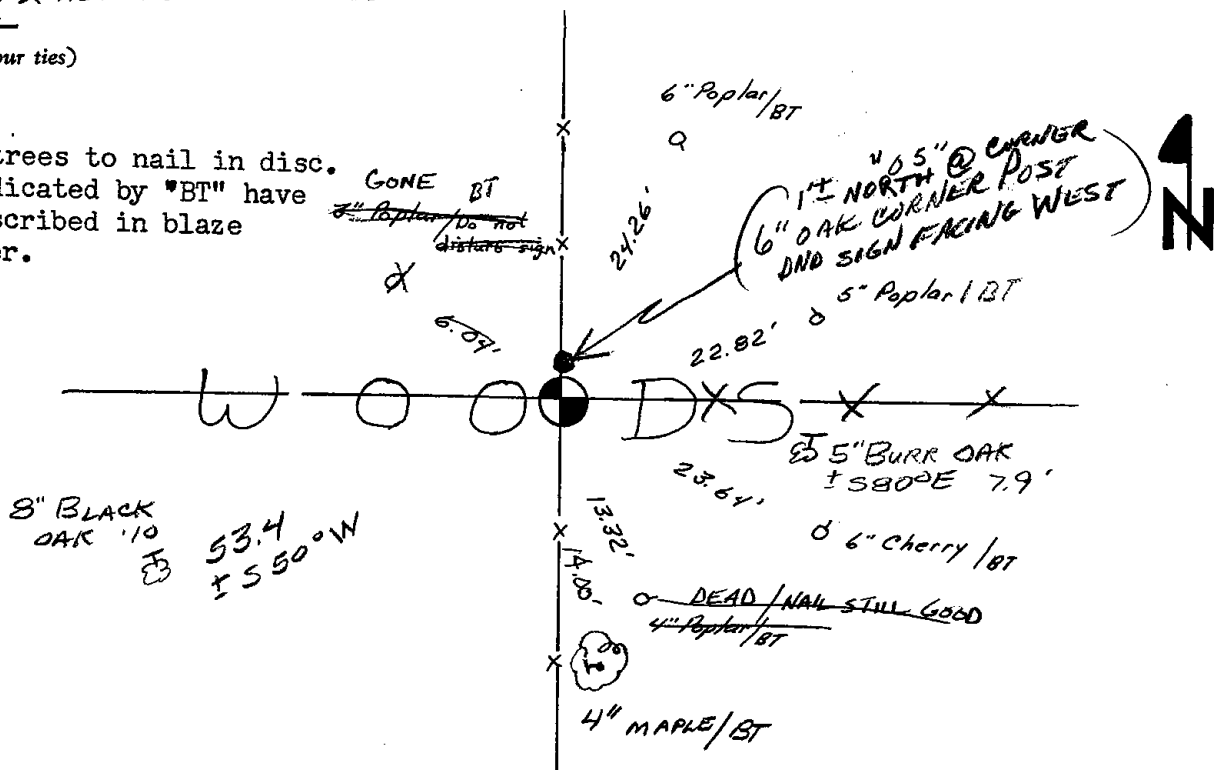 our ties)
trees to nail in disc.
dicated by "BT" have
scribed in blaze
er.
GONE BT
3" Poplar/Do not
disturb sign
6" Poplar/BT
24.26'
1'± NORTH @ CORNER
6" OAK CORNER POST
DND SIGN FACING WEST
N
5" Poplar/BT
22.82'
6.04'
WOODS
5" BURR OAK
± S80°E 7.9'
23.64'
8" BLACK
OAK '10
53.4
± S50°W
13.32'
6" Cherry/BT
14.00'
DEAD/NAIL STILL GOOD
4" Poplar/BT
4" MAPLE/BT